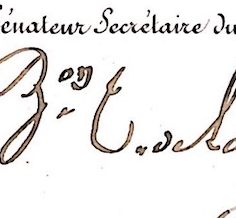 Sénateur Secrétaire du
Bon E. de La